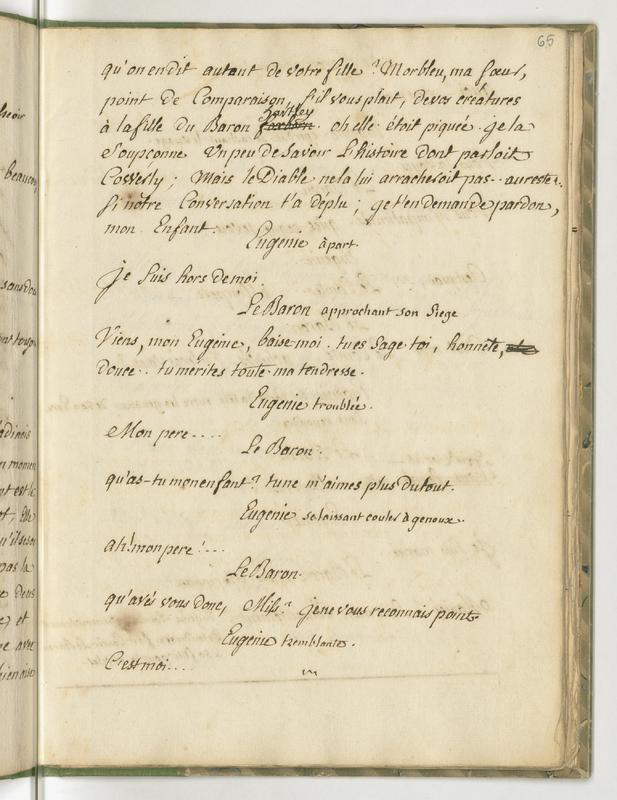 65
qu'on en dit autant de votre fille ? Morbleu, ma sœur,
point de Comparaison, s'il vous plait, de vos créatures
à la fille du Baron hartley. oh elle étoit piquée. je la
Soupçonne Un peu de Savoir L'histoire dont parloit
Cosverly ; Mais le Diable ne la lui arracheroit pas.. au reste.
Si nôtre Conversation t'a déplu ; je t'en demande pardon,
mon Enfant.
Eugenie à part.
Je suis hors de moi.
Le Baron approchant son Siege
Viens, mon Eugénie, baise moi. tu es Sage toi, honnête,
douce.. tu merites toute ma tendresse.
Eugenie troublée.
Mon pere....
Le Baron.
qu'as-tu mon enfant ? tu ne m'aimes plus du tout.
Eugenie se laissant couler à genoux.
ah ! mon pere !...
Le Baron.
qu'avés vous donc, Miss ? je ne vous reconnais point.
Eugenie tremblante.
C'est moi....
heoir
beaucoup
sans dou
ont toujou
adinois
n momen
nt est le
ot, Elle
qu'il se soi
pas la
e deux
e) et
ne avec
bien aise